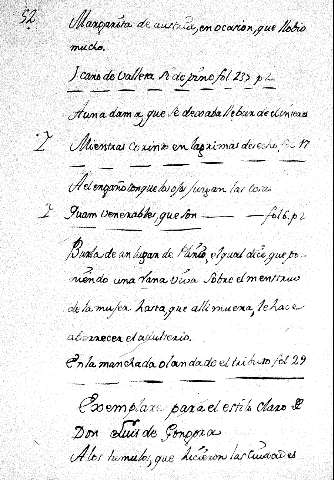 52
Margarita de austria, en ocasion, que llobio
mucho.
Icaro de valleta de pino, fol 237 p 2
A una dama, que se dexaba llebar de
I Mientras Corinto en lagrimas desecho, fo 17
Al engaño con que los ojos juzgan las cosas
I Quam venerables, que son — fol 6. p 2
Burla de un lugar de Plinio, el qual dice, que po-
niendo una rana viva sobre el menstruo
de la mujer hasta, que alli muera, le hace
aborrecer el adulterio.
En la manchada olanda de el tributo fol 29
Exemplare para el estilo claro de
Don Luis de Gongora
A los tumulos, que hicieron las Ciudades